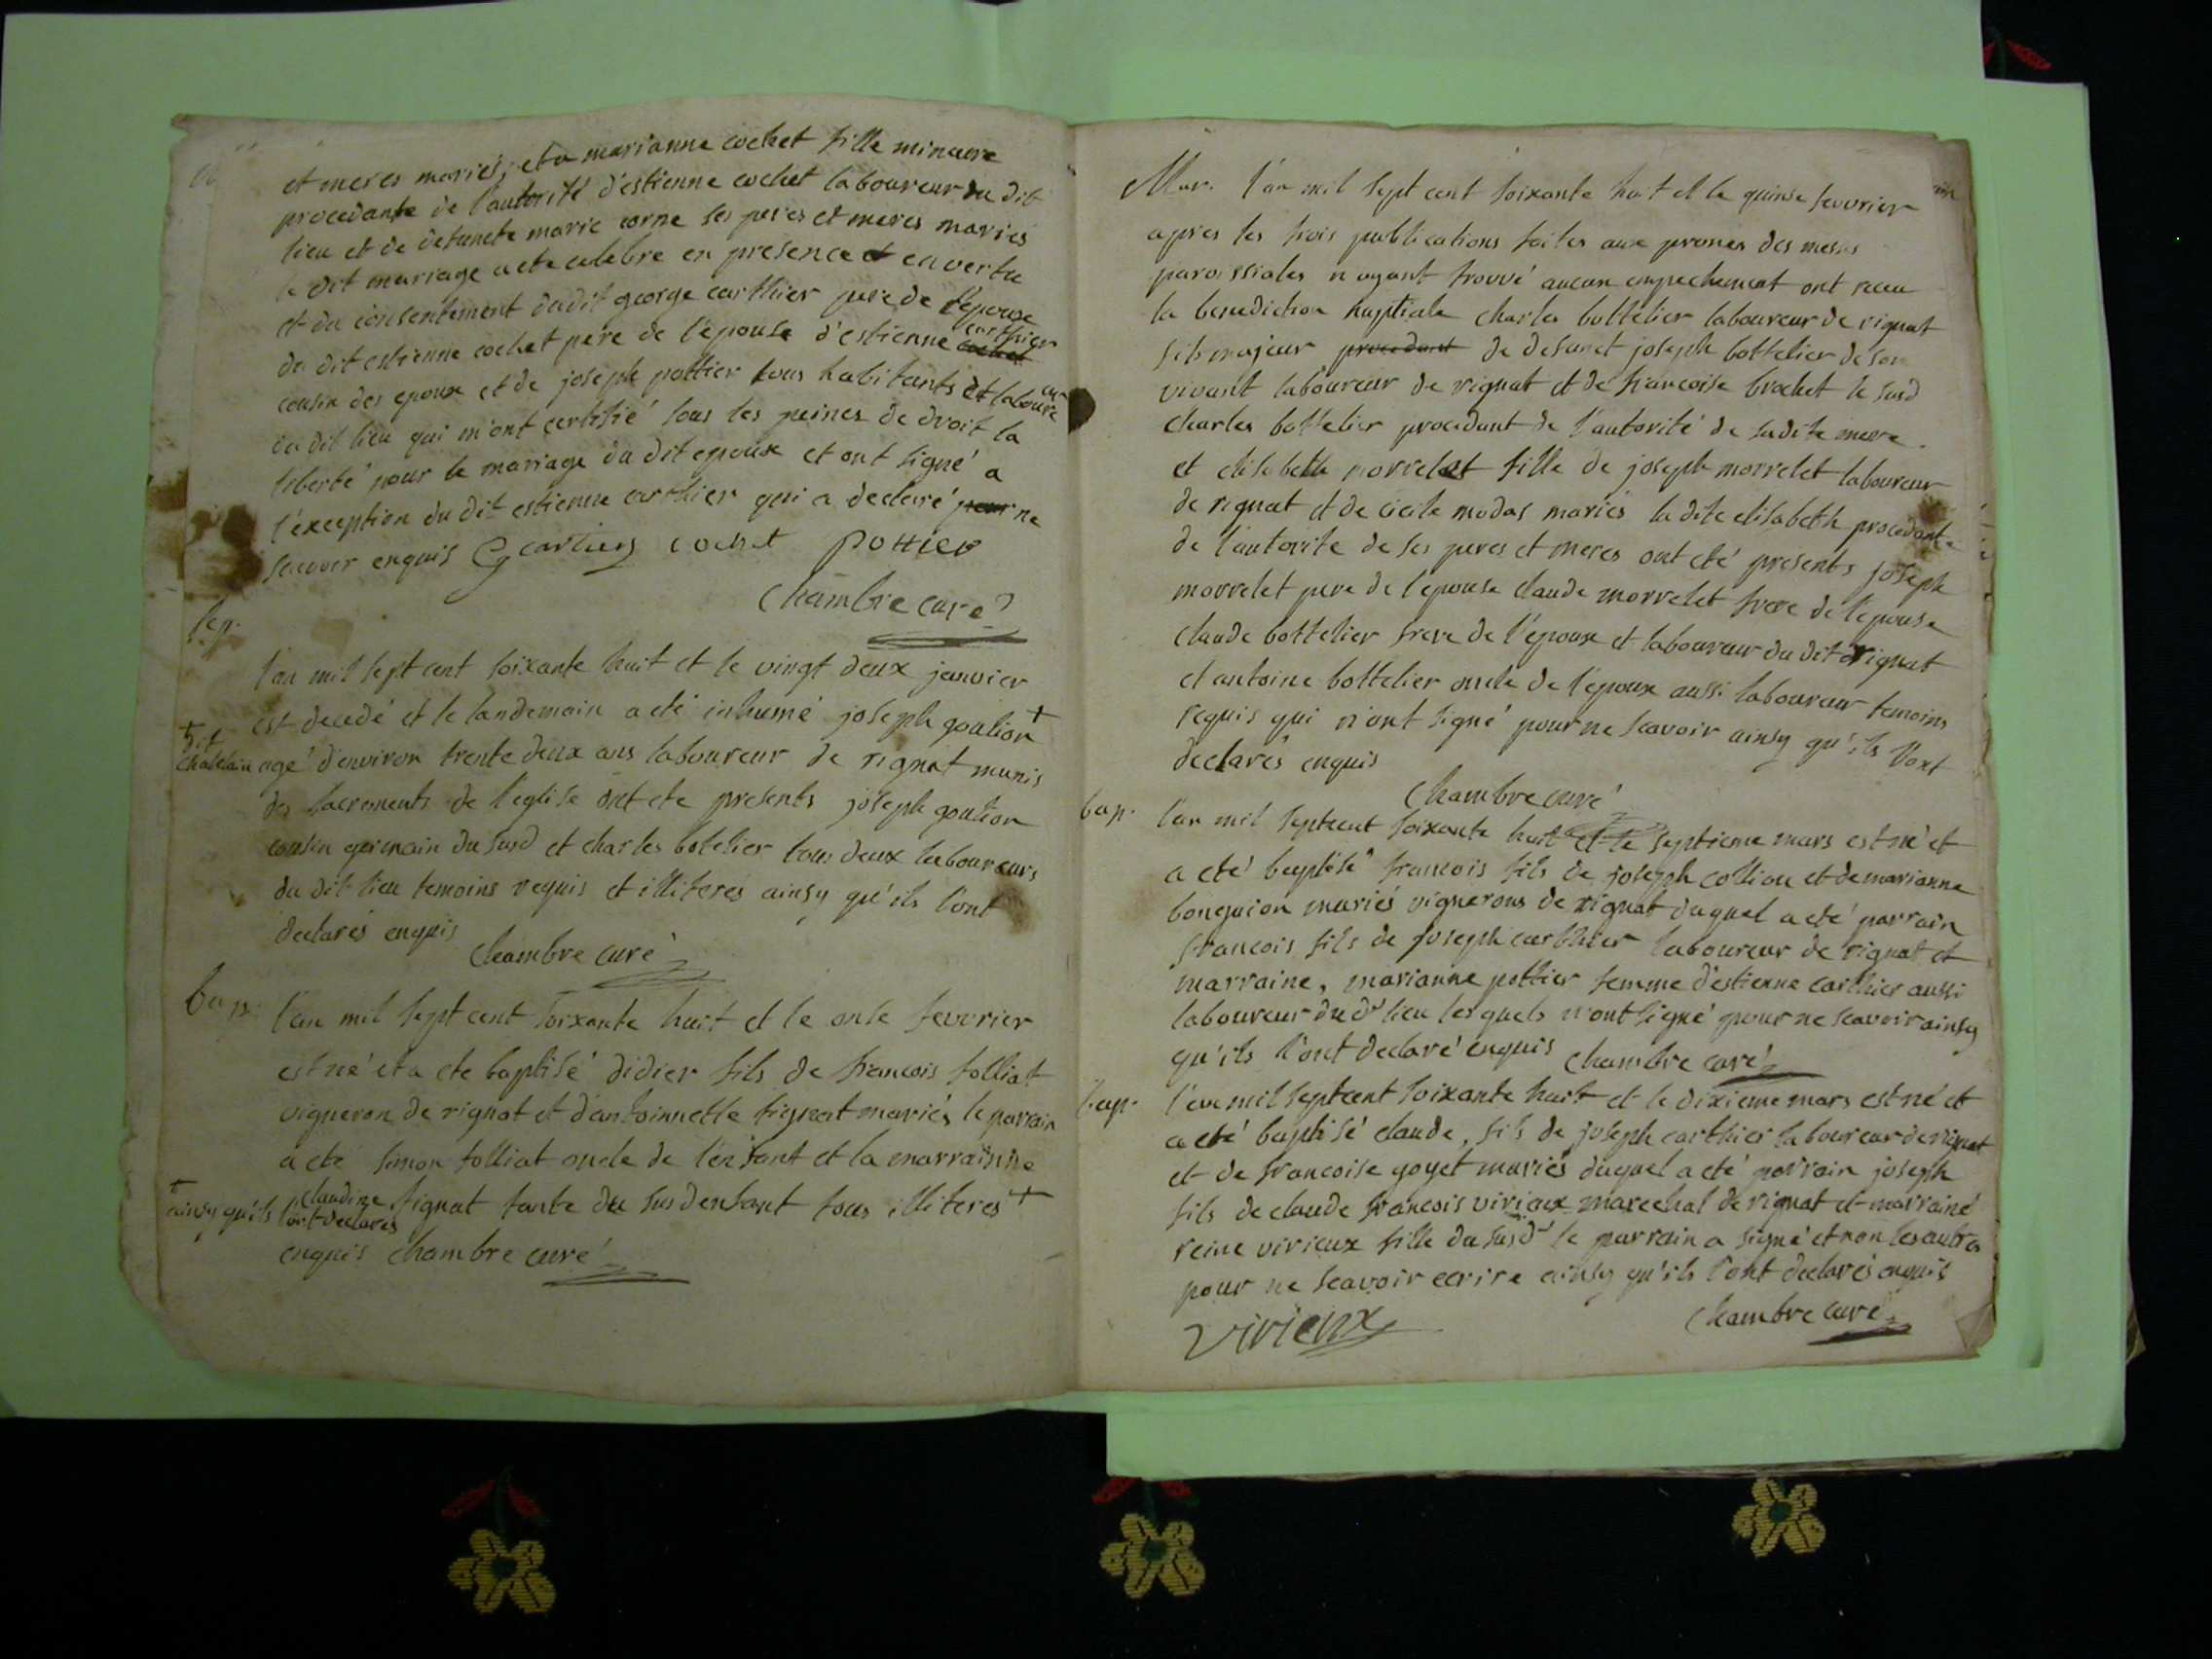 et meres mariés; et a marianne cochet fille mineure
procedante de l'autorité d'estienne cochet laboureur du dit
lieu et de defuncte marie corne ses peres et meres mariés
le dit mariage a ete celebre en presence et en vertu
et du consentement dudit george carthier pere de l'epoux
du dit estienne cochet pere de l'epouse d'estienne carthier cochet
cousin des epoux et de joseph pottier tous habitants et laboureur
du dit lieu qui m'ont certifié sous les peines de droit la
liberté pour le mariage du dit epoux et ont signé a
l'exception du dit estienne carthier qui a declaré pour ne
scavoir enquis G cartier cochet pottier
chambre curé
sep.
l'an mil sept cent soixante huit et le vingt deux janvier
est decedé et le landemain a eté inhumé joseph goulion +
+ dit chatelain agé d'environ trente deux ans laboureur de rignat munis
des sacrements de l'eglise ont ete presents joseph goulion
cousin germain du susd et charles botelier tous deux laboureurs
du dit lieu temoins requis et illiteres ainsy qu'ils l'ont
declarés enquis
chambre curé
bap. l'an mil sept cent soixante huit et le onse fevrier
est né et a ete baptisé didier fils de francois folliat
vigneron de rignat et d'antoinette signat mariés le parrain
a eté simon folliat oncle de l'enfant et la marrainne
claudine signat tante du susd enfant tous illiteres +
+ ainsy qu'ils l'ont declarés
enquis chambre curé
Mar. l'an mil sept cent soixante huit et le quinse fevvrier
apres les trois publications faites aux prones des messes
paroissiales n'ayant trouvé aucun empechement ont receu
la benediction nuptiale charles bottelier laboureur de rignat
fils majeur procedant de defunct joseph bottelier de son
vivant laboureur de rignat et de francoise brochet le susd
charles bottelier procedant de l'autorité de sadite mere
et elisabeth morrelet fille de joseph morrelet laboureur
de rignat et de cicile modas mariés la dite elisabeth procedante
de l'autorite de ses peres et meres ont eté presents joseph
morrelet pere de l'epouse claude morrelet frere de l'epouse
claude bottelier frere de l'epoux et laboureur du dit rignat
et antoine bottelier oncle de l'epoux aussi laboureur temoins
requis qui n'ont signé pour ne scavoir ainsy qu'ils l'ont
declarés enquis
chambre curé
bap. l'an mil septcent soixante huit et le septieme mars est né et
a eté baptisé francois fils de joseph collion et de marianne
bonguion mariés vignerons de rignat duquel a eté parrain
francois fils de joseph carthier laboureur de rignat et
marraine, marianne pottier femme d'estienne carthier aussi
laboureur du dt lieu lesquels n'ont signé pour ne scavoir ainsy
qu'ils l'ont declaré enquis chambre curé
bap. l'an mil septcent soixante huit et le dixieme mars est né et
a eté baptisé claude, fils de joseph carthier laboureur de rignat
et de francoise goyet mariés duquel a eté parrain joseph
fils de claude francois virieux marechal de rignat et marraine
reine virieux fille du susdt le parrain a signé et non les autres
pour ne scavoir ecrire ainsy qu'ils l'ont declarés enquis
chambre curé
Virieux